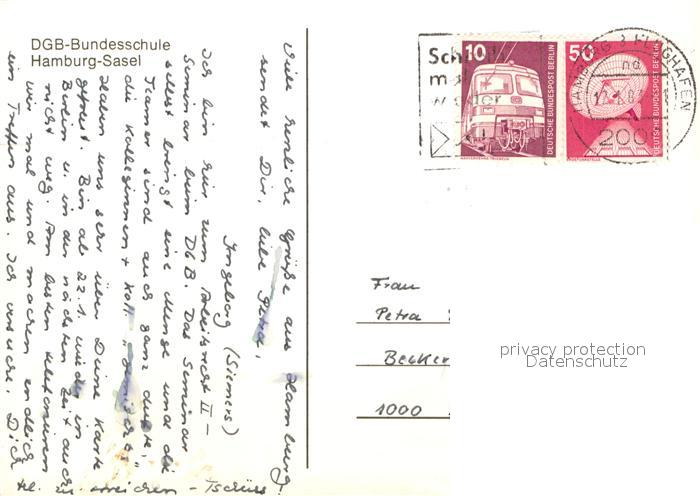 DGB-Bundesschule
Hamburg-Sasel
Viele herzliche Grüße aus Hamburg
sendet Dir, liebe Petra,
Ingeborg (Siemers)
Ich bin hier zum Arbeitsrecht II -
Seminar beim DGB. Das Seminar
selbst bringt eine Menge und die
Teamer sind auch ganz dufte,
die Kolleginnen + Koll.
Haben uns sehr über Deine Karte
gefreut. Bin ab 22.1. wieder in
Berlin u. in der nächsten Zeit auch
nicht weg. Am besten telefonieren
wir mal und machen endlich
ein Treffen aus. Ich versuche, Dich
tel. zu erreichen - Tschüss
10
DEUTSCHE BUNDESPOST BERLIN
50
DEUTSCHE BUNDESPOST BERLIN
Sch
HAMBURG FLUGHAFEN
200
Frau
Petra
Becker
1000
privacy protection
Datenschutz